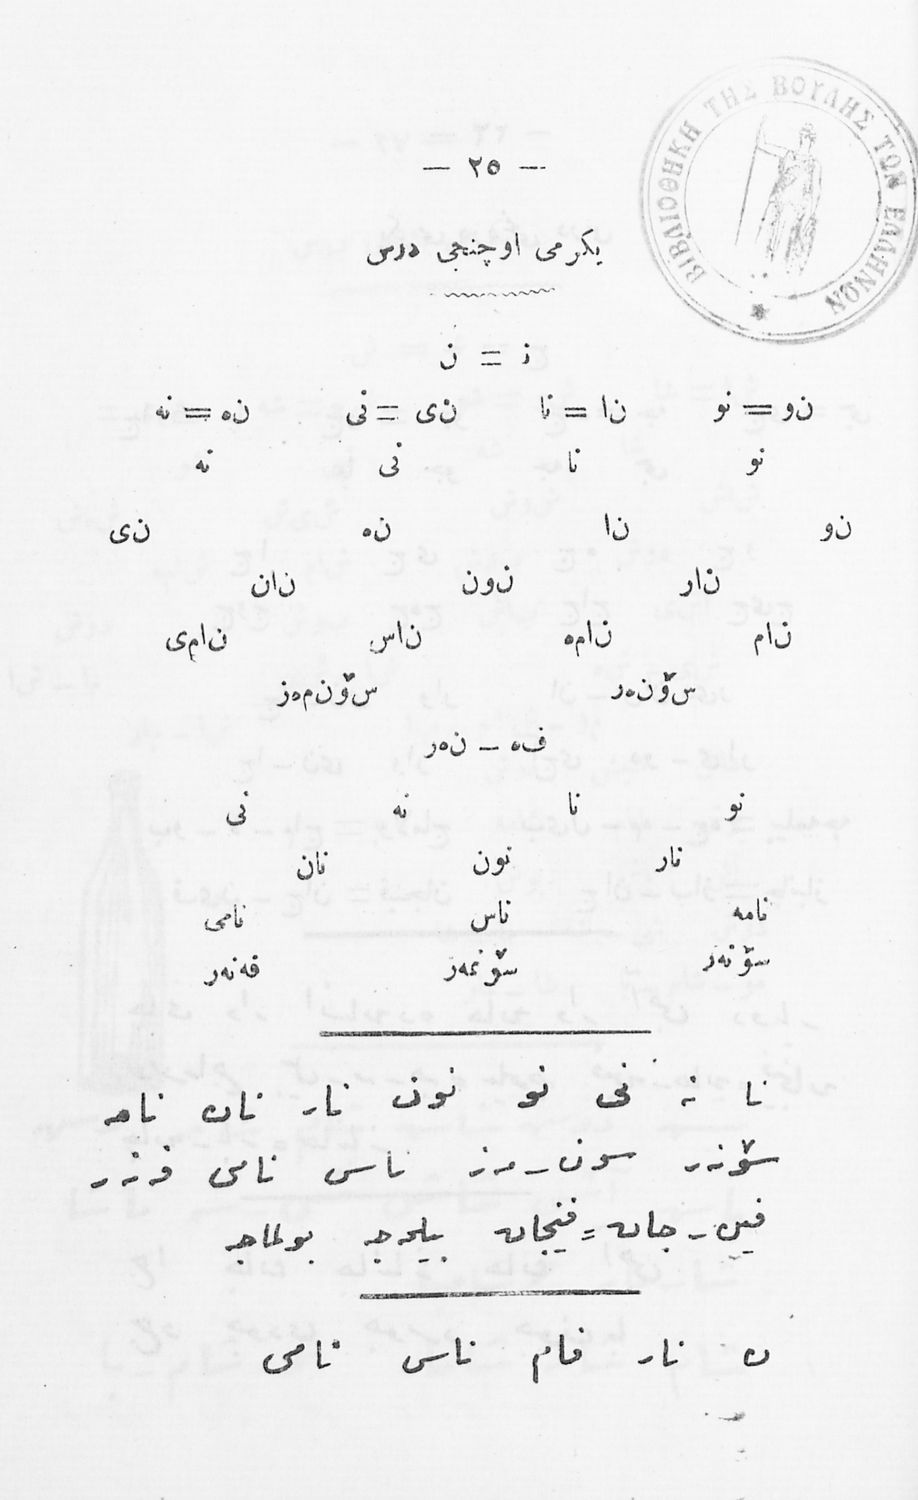 — ٢٥ —
ΒΙΒΛΙΟΘΗΚΗ ΤΗΣ ΒΟΥΛΗΣ ΤΩΝ ΕΛΛΗΝΩΝ
یكرمی اوچنجی درس
نـ = ن
ن‌و = نو ن‌ا = نا ن‌ی = نی ن‌ه = نه
نو نا نی نه
ن‌و ن‌ا ن‌ه ن‌ی
ن‌ار ن‌ون ن‌ان
ن‌ام ن‌ام‌ه ن‌اس ن‌ام‌ی
س‌ۆن‌ه‌ر س‌ۆن‌م‌ه‌ز
ف‌ه – ن‌ه‌ر
نو نا نه نی
نار نون نان
نامه ناس نامی
سۆنه‌ر سۆنمه‌ز فه‌نه‌ر
نا نه نی نو نون نار نان نامه
سۆنه‌ر سون‌ـمه‌ز ناس نامی فه‌نه‌ر
فین‌ـ‌جان = فینجان بیلمه‌جه بولماجه
ن نار نام ناس نامی